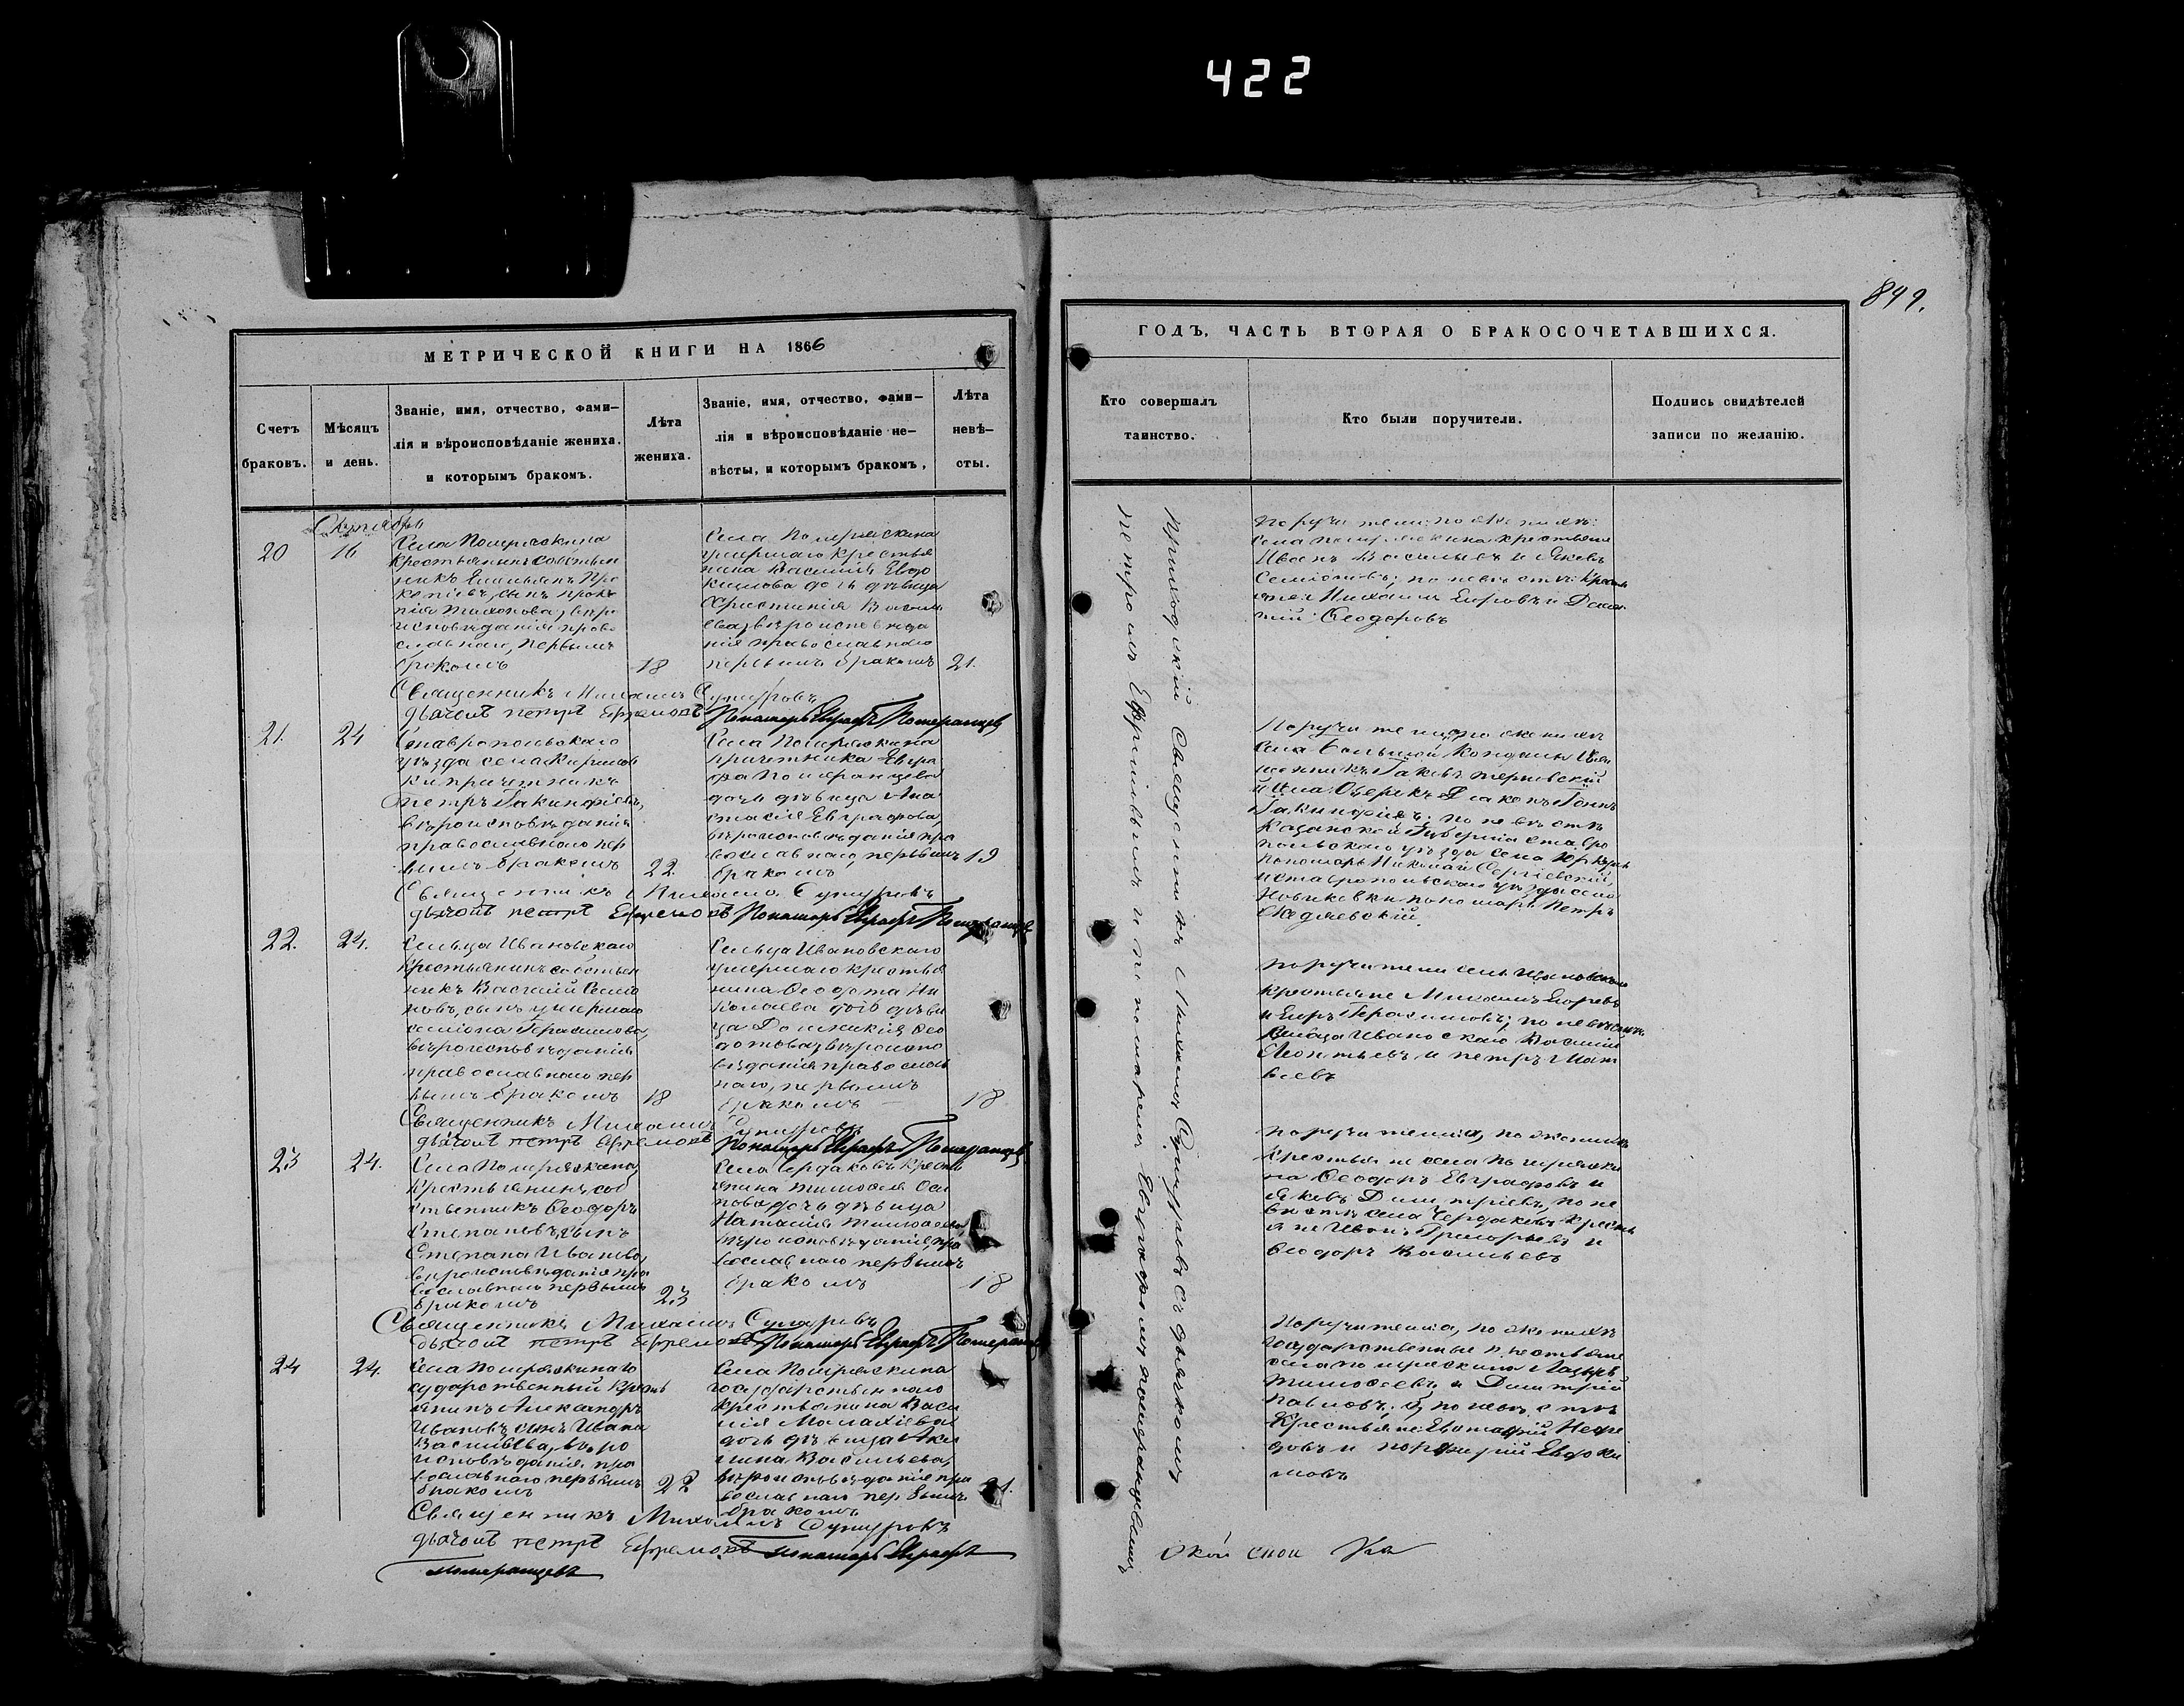 422
849.
МЕТРИЧЕСКОЙ КНИГИ НА 1866
Счетъ браковъ.
Мѣсяцъ и день.
Званіе, имя, отчество, фами-
лія и вѣроисповѣданіе жениха.
и которымъ бракомъ.
Лѣта жениха.
Званіе, имя, отчество, фами-
лія и вѣроисповѣданіе не-
вѣсты, и которымъ бракомъ,
Лѣта невѣ-
сты.
Октябрь
20
16
Села Помряскина
крестьянинъ собствен
никъ Емельянъ Про
копіевъ, сынъ Проко
пія Тихонова, вѣро
исповѣданія право
славнаго, первымъ
бракомъ
18
Села Помряскина
умершаго крестья
нина Василія Евдо
кимова дочь дѣвица
Христинія Василь
ева, вѣроисповѣда
нія православнаго
первымъ бракомъ
21.
Священникъ Михаилъ
дьячокъ Петръ Ефремовъ Пономарь Евграфъ Померанцевъ
21.
24
Ставропольскаго
уѣзда села
ки причетникъ
Петръ Іакинфіевъ,
вѣроисповѣданія
православнаго пер
вымъ бракомъ
22
Села Помряскина
причетника Евгра
фа Померанцева
дочь дѣвица Ана
стасія Евграфова,
вѣроисповѣданія пра
вославнаго, первымъ
бракомъ
19
Священникъ Михаилъ
дьячокъ Петръ Ефремовъ Пономарь Евграфъ Померанцевъ
22.
24.
Сельца Ивановскаго
крестьянинъ собствен
никъ Василій Семіо
новъ, сынъ умершаго
Семіона Герасимова,
вѣроисповѣданія
православнаго пер
вымъ бракомъ
18
Сельца Ивановскаго
умершаго крестья
нина Ѳеодота Ни
колаева дочь дѣви
ца Домникія Ѳео
дотова, вѣроиспо
вѣданія православ
наго, первымъ
бракомъ
18
Священникъ Михаилъ
дьячокъ Петръ Ефремовъ Пономарь Евграфъ Померанцевъ
23
24.
Села Помряскина
крестьянинъ соб
ственникъ Ѳеодоръ
Степановъ, сынъ
Степана Иванова,
вѣроисповѣданія пра
вославнаго первымъ
бракомъ
23
Села Чердаковъ кресть
янина Тимоѳея Оси
пова дочь дѣвица
Наталія Тимоѳеева
вѣроисповѣданія, пра
вославнаго первымъ
бракомъ
18
Священникъ Михаилъ
дьячокъ Петръ Ефремовъ Пономарь Евграфъ Померанцевъ
24
24.
Села Помряскина го
сударственный кресть
янинъ Александръ
Ивановъ сынъ Ивана
Васильева, вѣро
исповѣданія пра
вославнаго первымъ
бракомъ
22
Села Помряскина
государственнаго
крестьянина Васи
лія Малахіева
дочь дѣвица Аку
лина Васильева,
вѣроисповѣданія пра
вославнаго первымъ
бракомъ
21.
Священникъ Михаилъ
дьячокъ Петръ Ефремовъ Пономарь Евграфъ
Померанцевъ
ГОДЪ, ЧАСТЬ ВТОРАЯ О БРАКОСОЧЕТАВШИХСЯ.
Кто совершалъ
таинство.
Кто были поручители.
Подпись свидѣтелей
записи по желанію.
Приходскій Священникъ Михаилъ съ дьячкомъ
Петромъ Ефремовымъ и пономаремъ Евграфомъ Померанцевымъ
Поручители: по женихѣ:
села Помряскина крестьяне
Иванъ Васильевъ и Яковъ
Семіоновъ; по невѣстѣ: кресть
яне Михаилъ Егоровъ и
Ѳеодоровъ
Поручители: по женихѣ
села Большой Кандалы Свя
щенникъ Іаковъ
и Діаконъ Іоаннъ
Іакинфіевъ; по невѣстѣ
Казанской Губерніи
уѣзда села
пономарь Николай Сергіевскій,
и Ставропольскаго уѣзда села
Новиковки пономарь Петръ
Поручители сель. Ивановскаго
крестьяне Михаилъ Егоровъ
и Егоръ Герасимовъ; по невѣстѣ
сельца Ивановскаго Василій
Леонтьевъ и Петръ Мат
вѣевъ
Поручители, по женихѣ
крестьяне села Помряски
на Ѳеодоръ Евграфовъ и
Яковъ Димитріевъ, по не
вѣстѣ села Чердаковъ кресть
яне Иванъ Григорьевъ и
Ѳеодоръ Васильевъ
Поручители, по женихѣ
государственные крестьяне
села Помряскина Лазарь
Тимоѳеевъ и Димитрій
Павловъ; по невѣстѣ
крестьяне Евстафій Неѳе
довъ и Порфирій Евдоки
мовъ